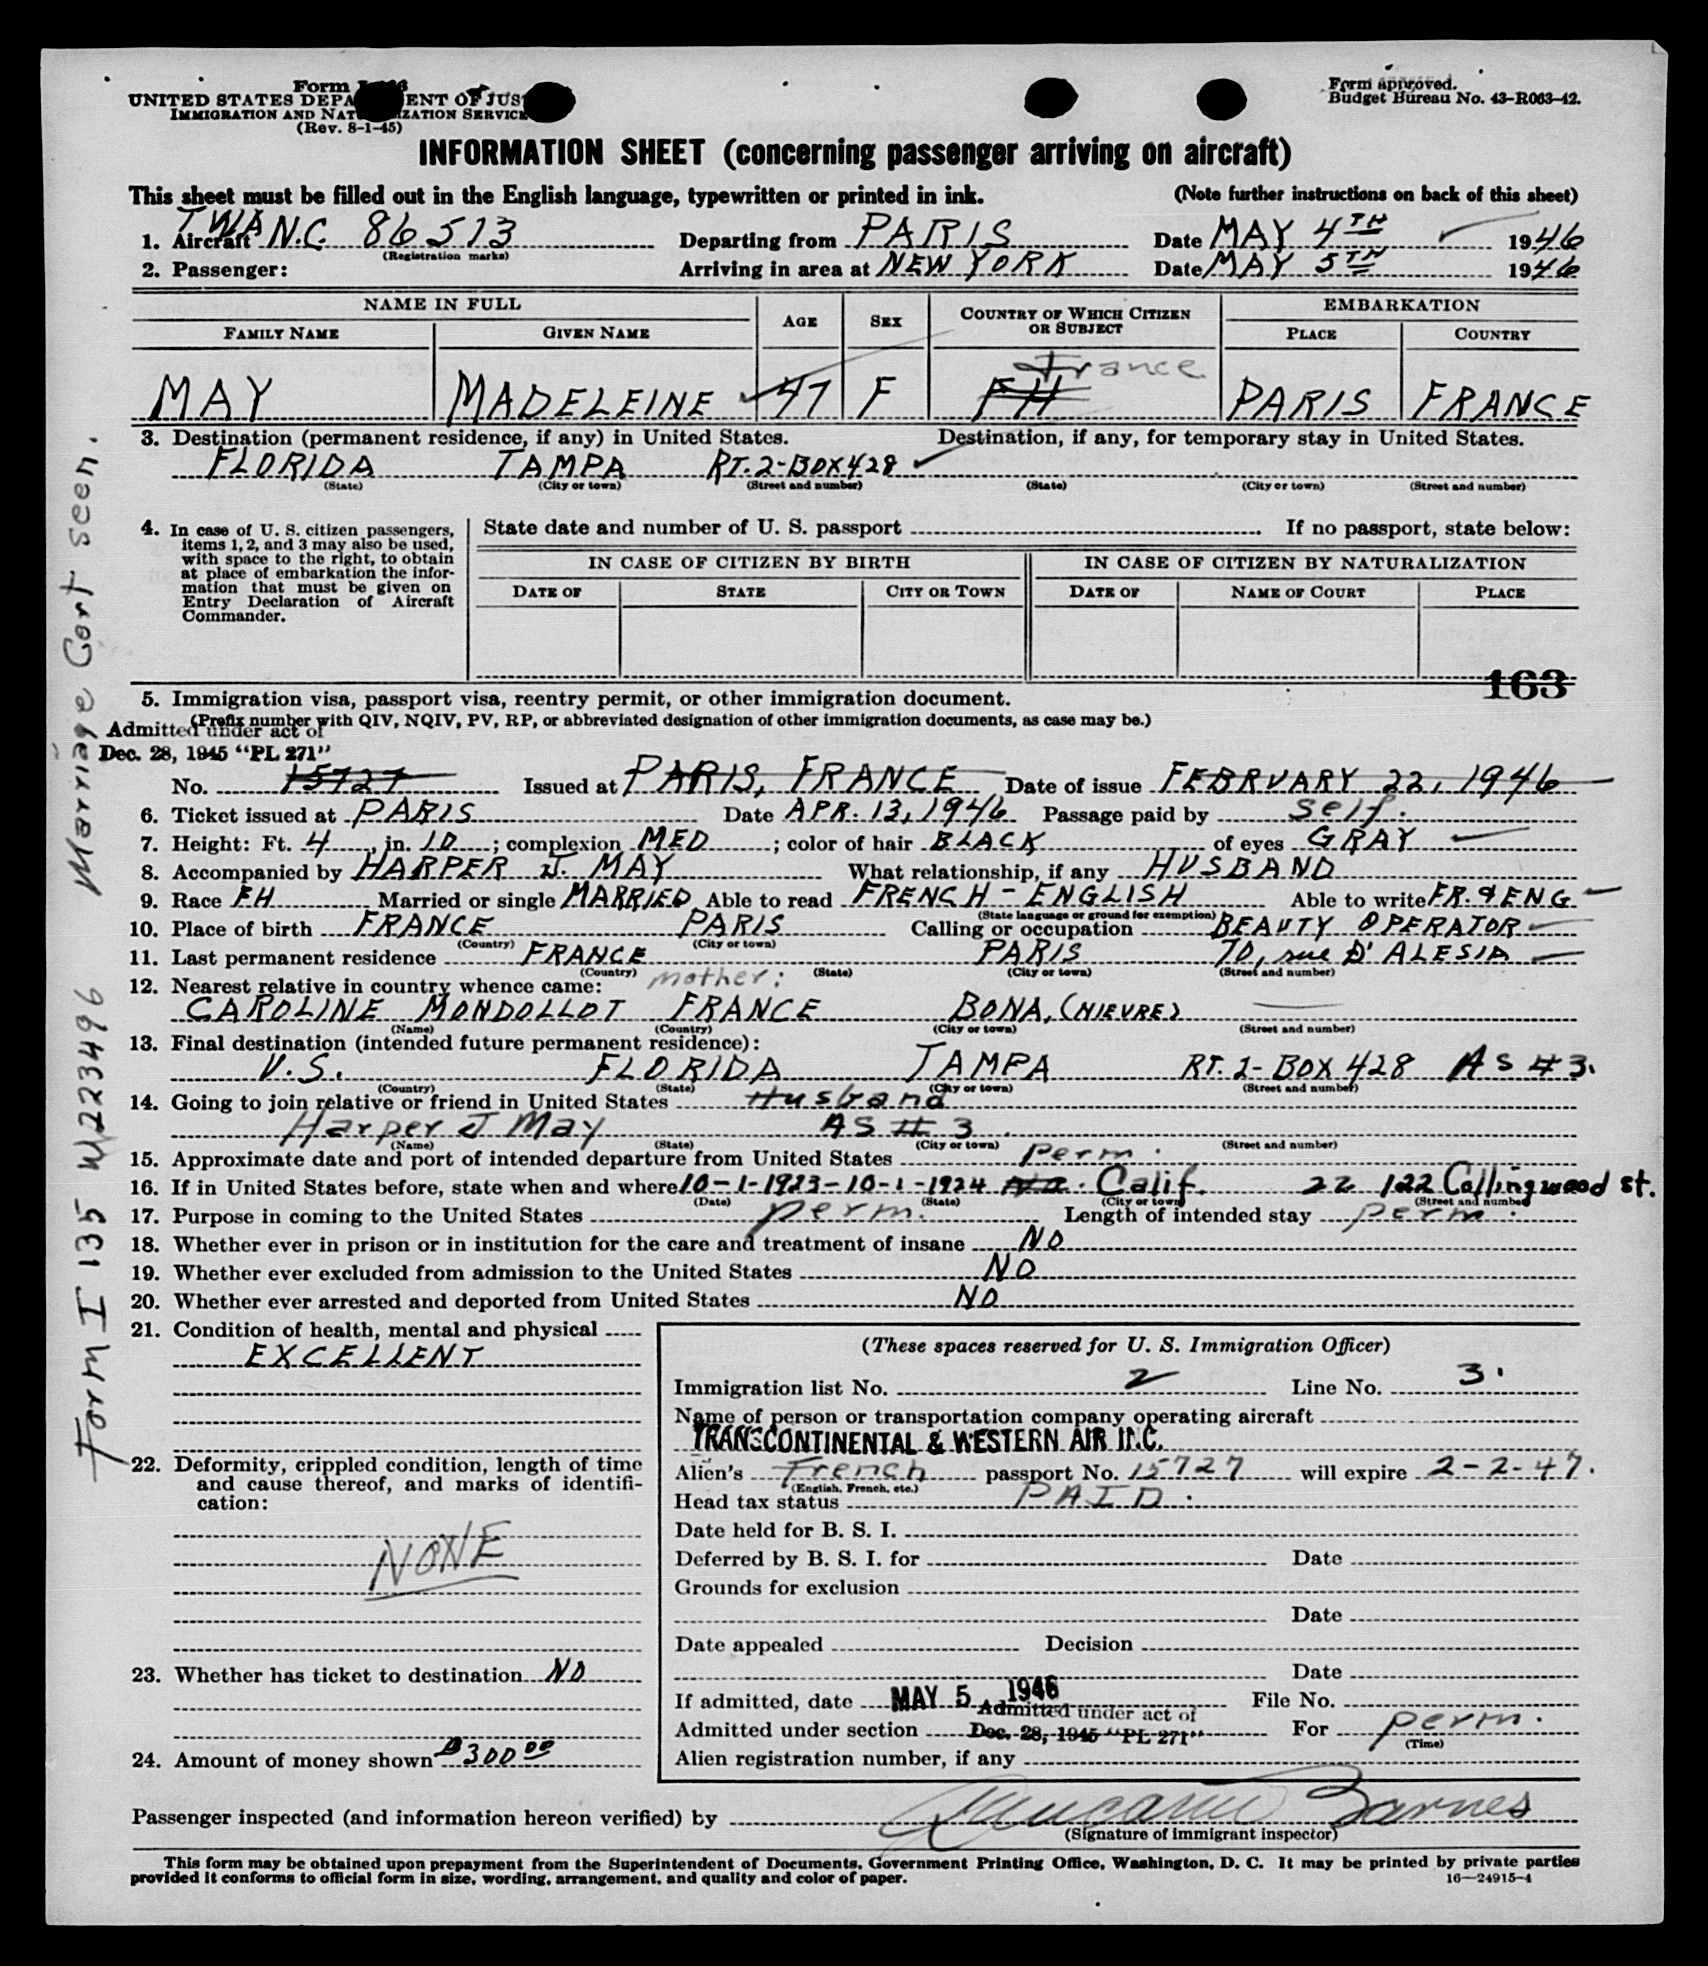 Form
UNITED STATES DEPARTMENT OF JUSTICE
IMMIGRATION AND NATURALIZATION SERVICE
(Rev. 8-1-45)
Form approved.
Budget Bureau No. 43-R063-42.
INFORMATION SHEET (concerning passenger arriving on aircraft)
This sheet must be filled out in the English language, typewritten or printed in ink. (Note further instructions on back of this sheet)
1. Aircraft TWA N.C. 86513 Departing from PARIS Date MAY 4TH 1946
(Registration marks)
2. Passenger: Arriving in area at NEW YORK Date MAY 5TH 1946
NAME IN FULL AGE SEX COUNTRY OF WHICH CITIZEN OR SUBJECT EMBARKATION
FAMILY NAME GIVEN NAME PLACE COUNTRY
France
MAY MADELEINE 47 F FH PARIS FRANCE
3. Destination (permanent residence, if any) in United States. Destination, if any, for temporary stay in United States.
FLORIDA TAMPA RT. 2-BOX 428
(State) (City or town) (Street and number) (State) (City or town) (Street and number)
4. In case of U. S. citizen passengers, items 1, 2, and 3 may also be used, with space to the right, to obtain at place of embarkation the information that must be given on Entry Declaration of Aircraft Commander.
State date and number of U. S. passport If no passport, state below:
IN CASE OF CITIZEN BY BIRTH IN CASE OF CITIZEN BY NATURALIZATION
DATE OF STATE CITY OR TOWN DATE OF NAME OF COURT PLACE
163
5. Immigration visa, passport visa, reentry permit, or other immigration document.
(Prefix number with QIV, NQIV, PV, RP, or abbreviated designation of other immigration documents, as case may be.)
Admitted under act of
Dec. 28, 1945 "PL 271"
No. 15727 Issued at PARIS, FRANCE Date of issue FEBRUARY 22, 1946
6. Ticket issued at PARIS Date APR. 13, 1946 Passage paid by self.
7. Height: Ft. 4, in. 10; complexion MED; color of hair BLACK of eyes GRAY
8. Accompanied by HARPER J. MAY What relationship, if any HUSBAND
9. Race FH Married or single MARRIED Able to read FRENCH - ENGLISH Able to write FR. & ENG
(State language or ground for exemption)
10. Place of birth FRANCE PARIS Calling or occupation BEAUTY OPERATOR
(Country) (City or town)
11. Last permanent residence FRANCE PARIS 70, rue D'ALESIA
(Country) (State) (City or town) (Street and number)
12. Nearest relative in country whence came: mother:
CAROLINE MONDOLLOT FRANCE BONA, (NIEVRE)
(Name) (Country) (City or town) (Street and number)
13. Final destination (intended future permanent residence):
U.S. FLORIDA TAMPA RT. 2- BOX 428 AS #3.
(Country) (State) (City or town) (Street and number)
14. Going to join relative or friend in United States Husband
Harper J May AS # 3
(Name) (State) (City or town) (Street and number)
15. Approximate date and port of intended departure from United States perm.
16. If in United States before, state when and where 10-1-1923-10-1-1924 Calif. 22 122 Collingwood st.
(Date) (State) (City or town) (Street and number)
17. Purpose in coming to the United States perm. Length of intended stay perm.
18. Whether ever in prison or in institution for the care and treatment of insane NO
19. Whether ever excluded from admission to the United States NO
20. Whether ever arrested and deported from United States NO
21. Condition of health, mental and physical
EXCELLENT
22. Deformity, crippled condition, length of time and cause thereof, and marks of identification:
NONE
23. Whether has ticket to destination NO
24. Amount of money shown $300.00
(These spaces reserved for U. S. Immigration Officer)
Immigration list No. 2 Line No. 3.
Name of person or transportation company operating aircraft
TRANSCONTINENTAL & WESTERN AIR INC.
Alien's French passport No. 15727 will expire 2-2-47.
(English, French, etc.)
Head tax status PAID.
Date held for B. S. I.
Deferred by B. S. I. for Date
Grounds for exclusion
Date
Date appealed Decision
Date
If admitted, date MAY 5 1946 File No.
Admitted under act of
Admitted under section Dec. 28, 1945 "PL 271" For perm.
(Time)
Alien registration number, if any
Passenger inspected (and information hereon verified) by Barnes
(Signature of immigrant inspector)
This form may be obtained upon prepayment from the Superintendent of Documents, Government Printing Office, Washington, D. C. It may be printed by private parties
provided it conforms to official form in size, wording, arrangement, and quality and color of paper. 16-24915-4
Marriage Cert seen.
Form I 135 W223496